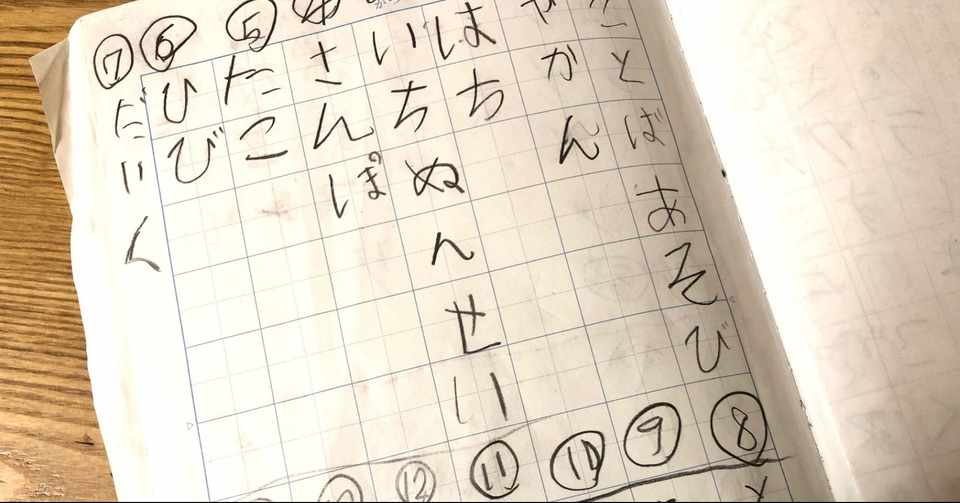 ことばあそび
やかん
はち
いちぬんせい
④さんぽ
⑤たこ
⑥ひび
⑦だいく
⑧
⑨
⑩
⑪
⑫